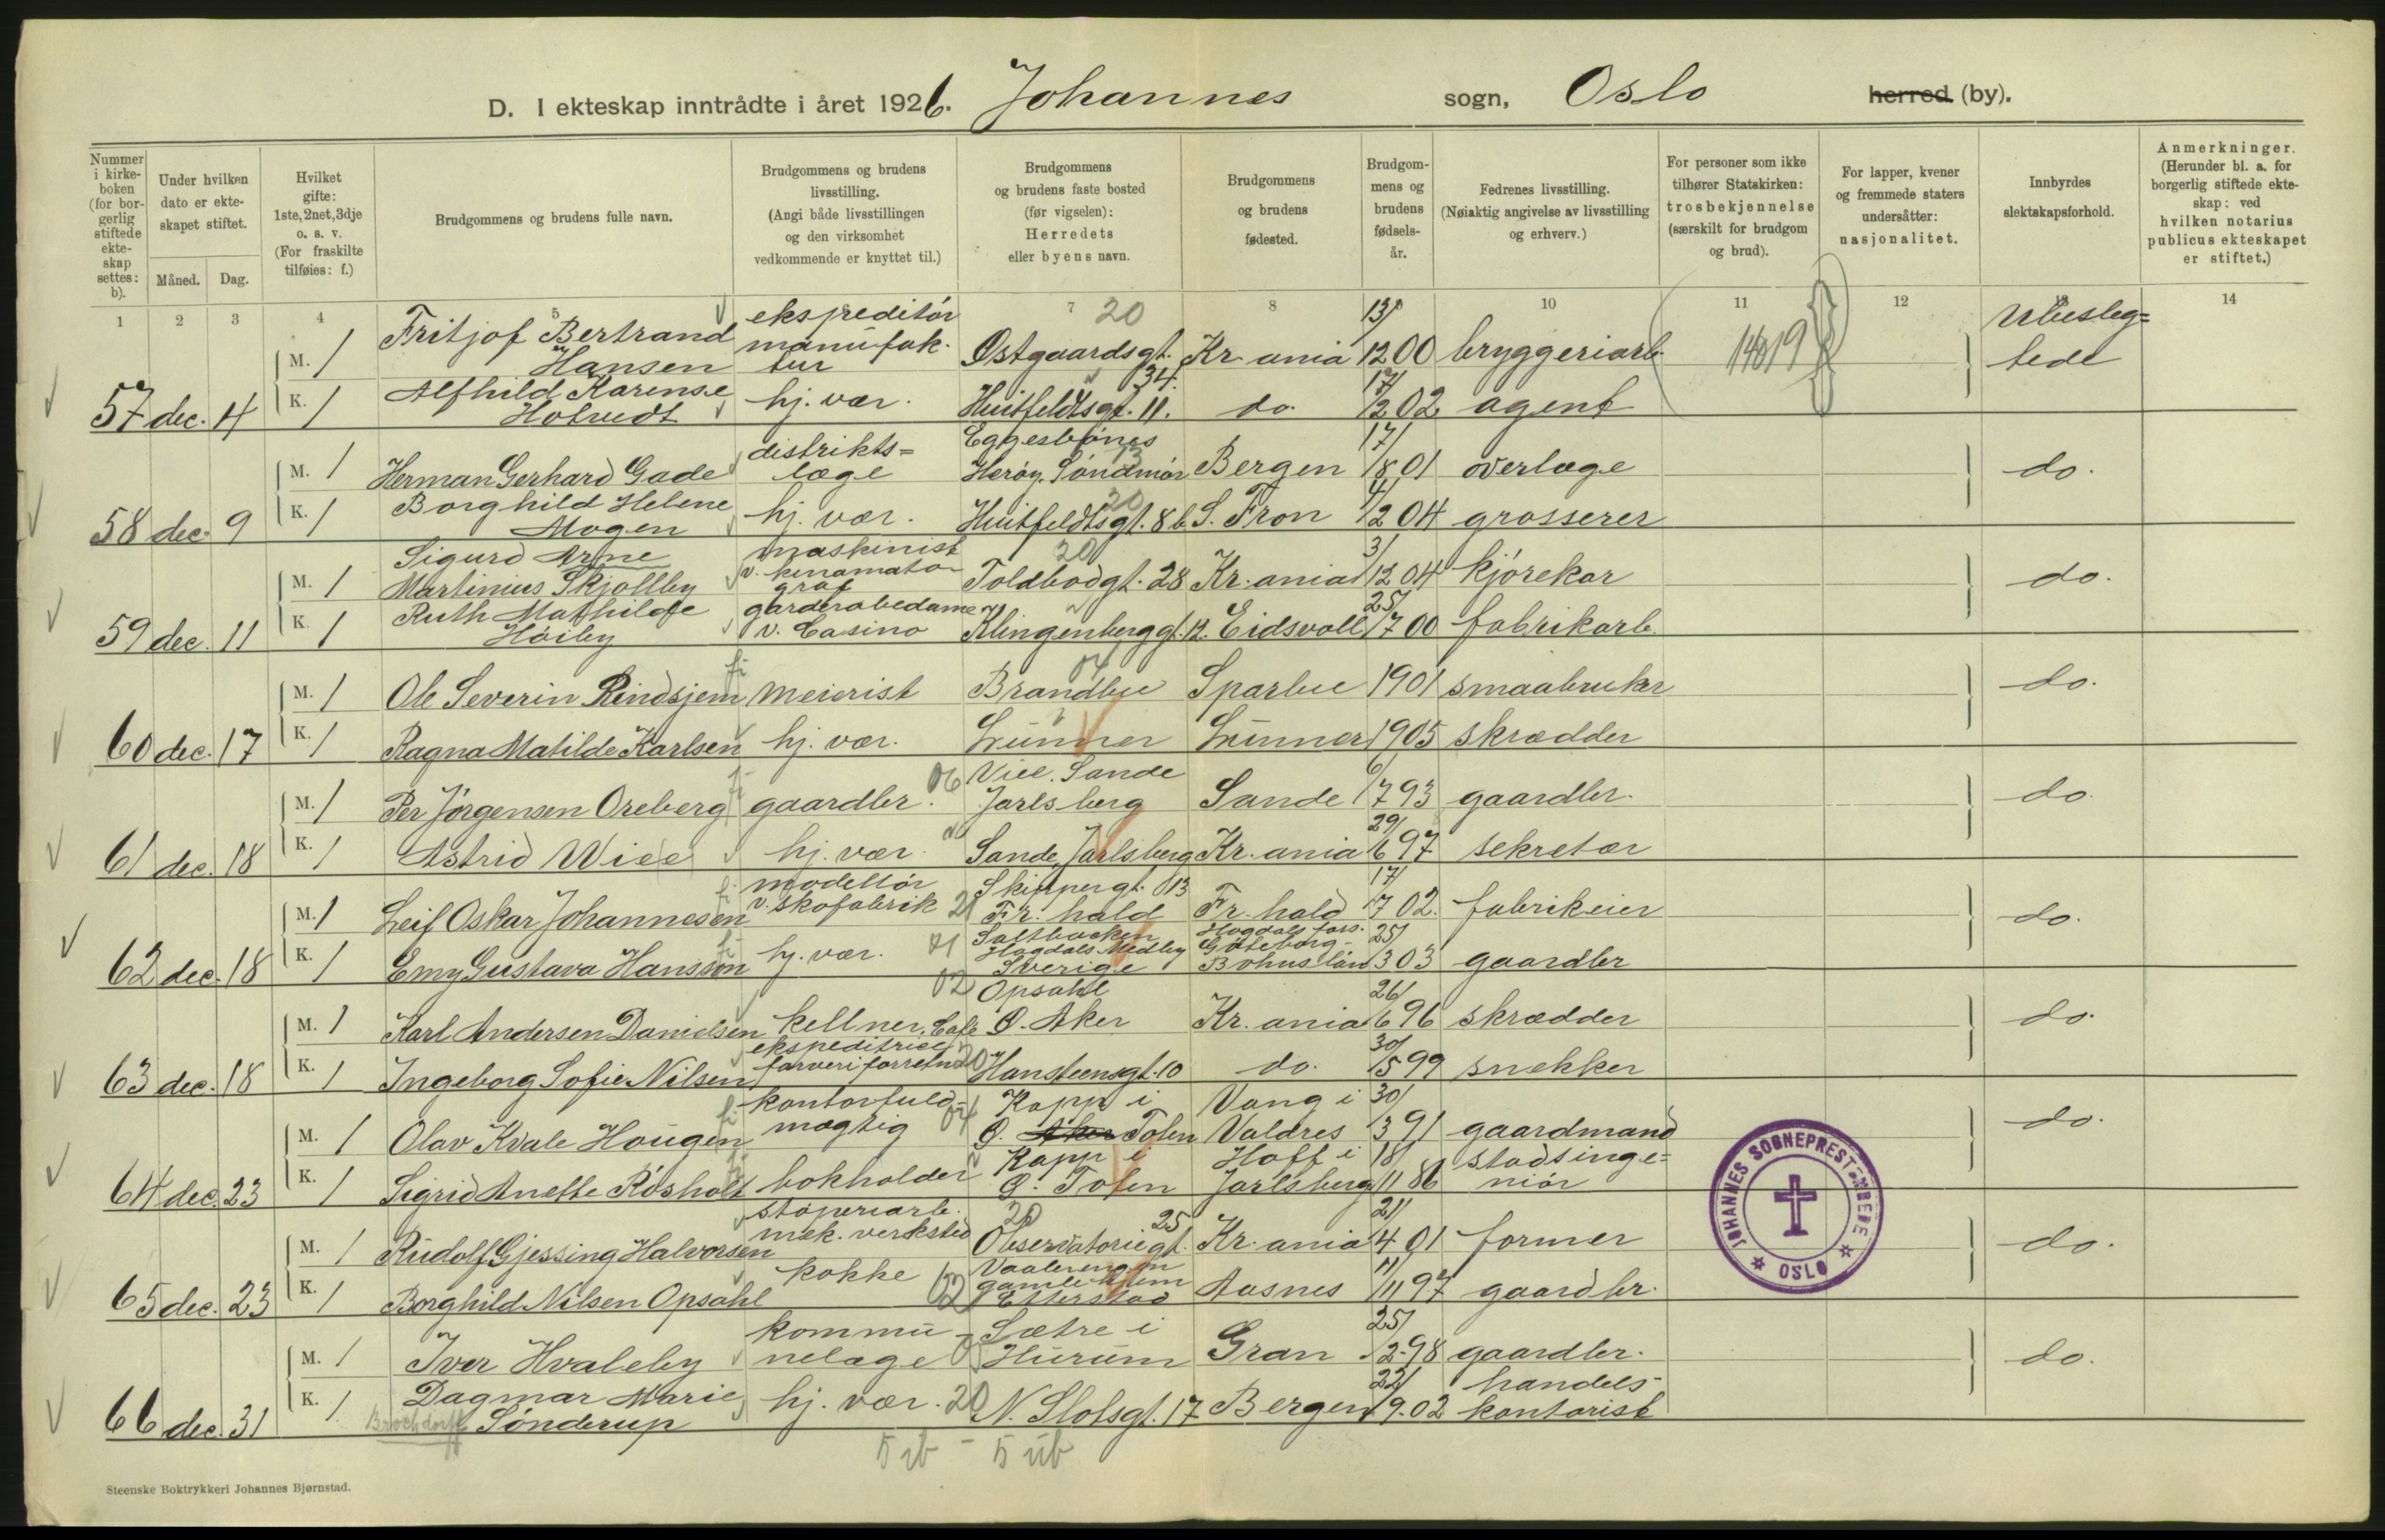 D. I ekteskap inntrådte i året 1926. Johannes sogn, Oslo herred (by).
Nummer i kirkeboken (for borgerlig stiftede ekteskap settes: b).
Under hvilken dato er ekteskapet stiftet.
Måned. Dag.
Hvilket gifte: 1ste, 2net, 3dje o. s. v. (For fraskilte tilføies: f.)
Brudgommens og brudens fulle navn.
Brudgommens og brudens livsstilling. (Angi både livsstillingen og den virksomhet vedkommende er knyttet til.)
Brudgommens og brudens faste bosted (før vigselen): Herredets eller byens navn.
Brudgommens og brudens fødested.
Brudgommens og brudens fødselsår.
Fedrenes livsstilling. (Nøiaktig angivelse av livsstilling og erhverv.)
For personer som ikke tilhører Statskirken: trosbekjennelse (særskilt for brudgom og brud).
For lapper, kvener og fremmede staters undersåtter: nasjonalitet.
Innbyrdes slektskapsforhold.
Anmerkninger. (Herunder bl. a. for borgerlig stiftede ekteskap: ved hvilken notarius publicus ekteskapet er stiftet.)
1 2 3 4 5 7 8 10 11 12 14
M. 1 Fritjof Bertrand Hansen ekspreditör manufaktur 20 Östgaardsgt. 34. Kr.ania 13/12 00 bryggeriarb. Ubeslegtede
57 dec. 4 K. 1 Alfhild Karense Holvedt hj. vær. Huitfeldtsgt. 11. do. 17/12 02 agent
M. 1 Herman Gerhard Gade distriktslæge Eggesbönes Heröy. Söndmör Bergen 17/8 01 overlæge do.
58 dec. 9 K. 1 Borghild Helene Mogen hj. vær. 20 Huitfeldtsgt. 8b S. Fron 4/2 04 grosserer
M. 1 Sigurd Arne Martinius Skjollby maskinist v. kinamatograf 20 Toldbodgt. 28 Kr.ania 3/12 04 kjörekar do.
59 dec. 11 K. 1 Ruth Mathilde Höiby garderobedame v. Casino Klingenberggt. 12. Eidsvoll 25/7 00 fabrikarb.
M. 1 Ole Severin Rindsjem meierist 04 Brandbu Sparbu 1901 smaabruker do.
60 dec. 17 K. 1 Ragna Matilde Karlsen hj. vær. Lunner Lunner 1905 skrædder
M. 1 Per Jörgensen Oreberg gaardbr. 06 Viee. Sande Jarlsberg Sande 6/7 93 gaardbr. do.
61 dec. 18 K. 1 Astrid Wiee hj. vær. Sande, Jarlsberg Kr.ania 29/6 97 sekretær
M. 1 Leif Oskar Johannesen modellör v. skofabrik 21 Skippergt. 13 Fr.hald Fr.hald 17/7 02. fabrikeier do.
62 dec. 18 K. 1 Emy Gustava Hansson hj. vær. Saltbacken Hogdals Medby Sverige Hogdals fors. Göteborg- Bohuslän 25/3 03 gaardbr
M. 1 Karl Andersen Danielsen kellner, Cafe 02 Opsahl Ö. Aker Kr.ania 26/6 96 skrædder do.
63 dec. 18 K. 1 Ingeborg Sofie Nilsen ekspeditrice farveriforretn. 20 Hansteensgt. 10 do. 30/5 99 snekker
M. 1 Olav Kvale Hougen kontorfuldmægtig 04 Kapp i Ö. Aker Toten Vang i Valdres 30/3 91 gaardmand do.
64 dec. 23 K. 1 Sigrid Anette Rösholt bokholder Kapp i Ö. Toten Hoff i Jarlsberg 18/11 86 stadsingeniör
M. 1 Rudolf Gjessing Halvorsen stöperiarb. mek. verksted 20 Observatoriegt. 25 Kr.ania 21/4 01 former do.
65 dec. 23 K. 1 Borghild Nilsen Opsahl kokke 02 Vaalerengen gamle hjem Etterstad Aasnes 11/11 97 gaardbr.
M. 1 Iver Hvaleby kommunelæge Sætre i Hurum Gran 25/2-98 gaardbr. do.
66 dec. 31 K. 1 Dagmar Marie Brochdorff Sönderup hj. vær. 20 N. Slotsgt. 17 Bergen 22/9.02 handelskontorist
JOHANNES SOGNEPRESTEMBEDE * OSLO *
Steenske Boktrykkeri Johannes Bjørnstad.